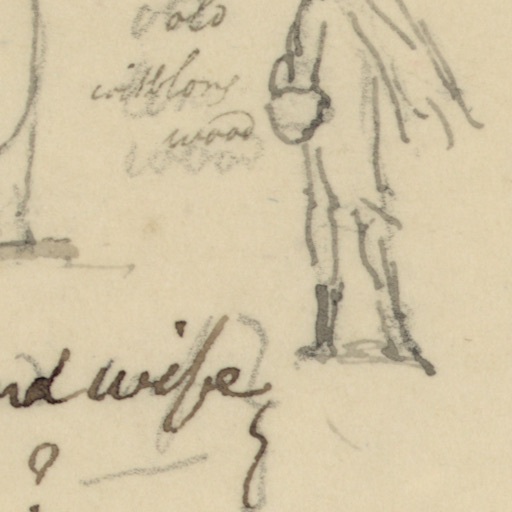 old
with long
wood
nd wife
?